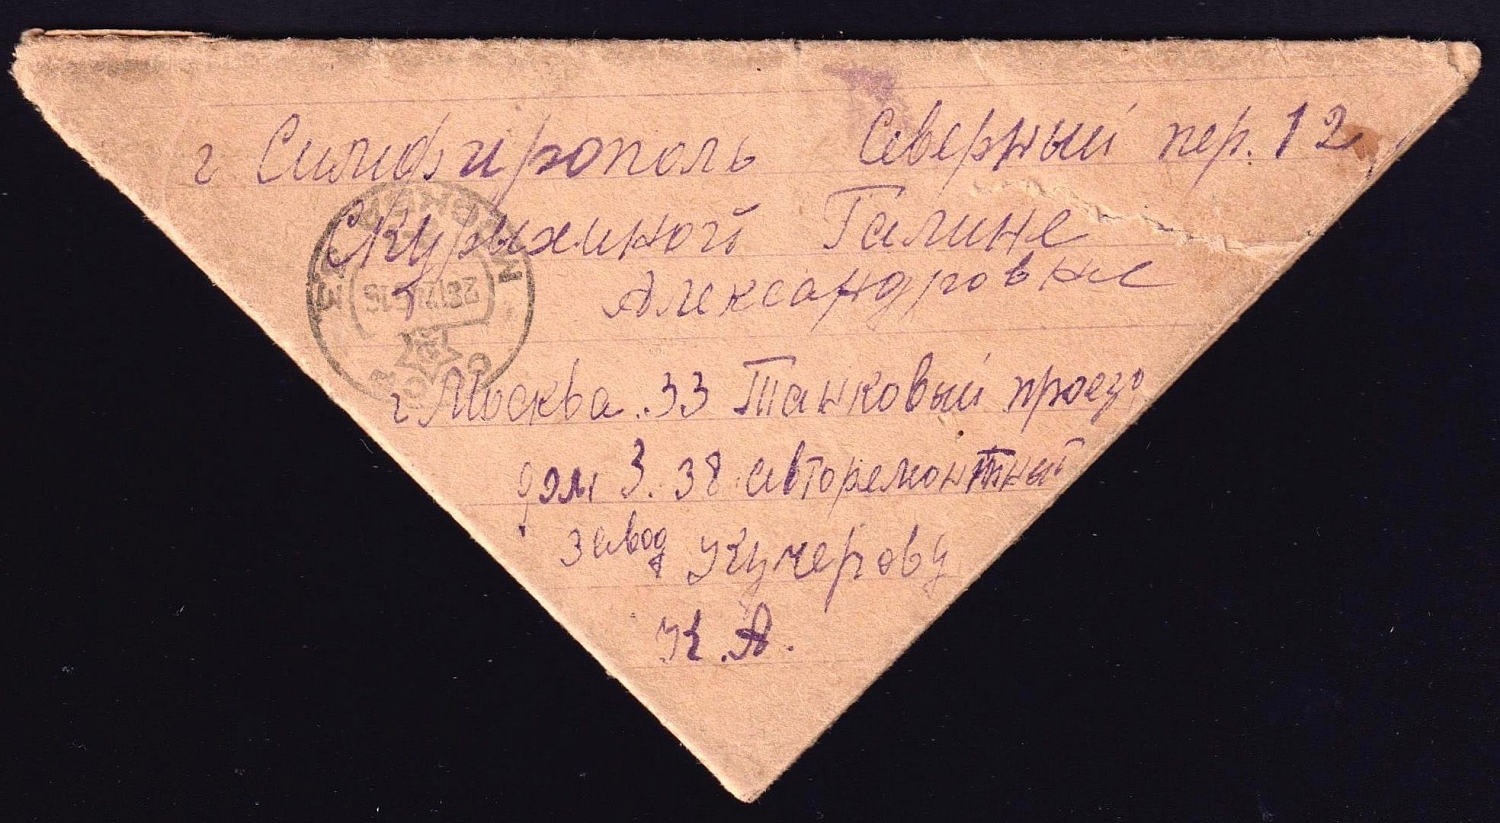 г Симфирополь Северный пер. 12
Скурихиной Галине
Александровне
г. Москва. 33 Танковый проезд
дом 3. 38 авторемонтный
завод Кучерову
К. А.
МОСКВА